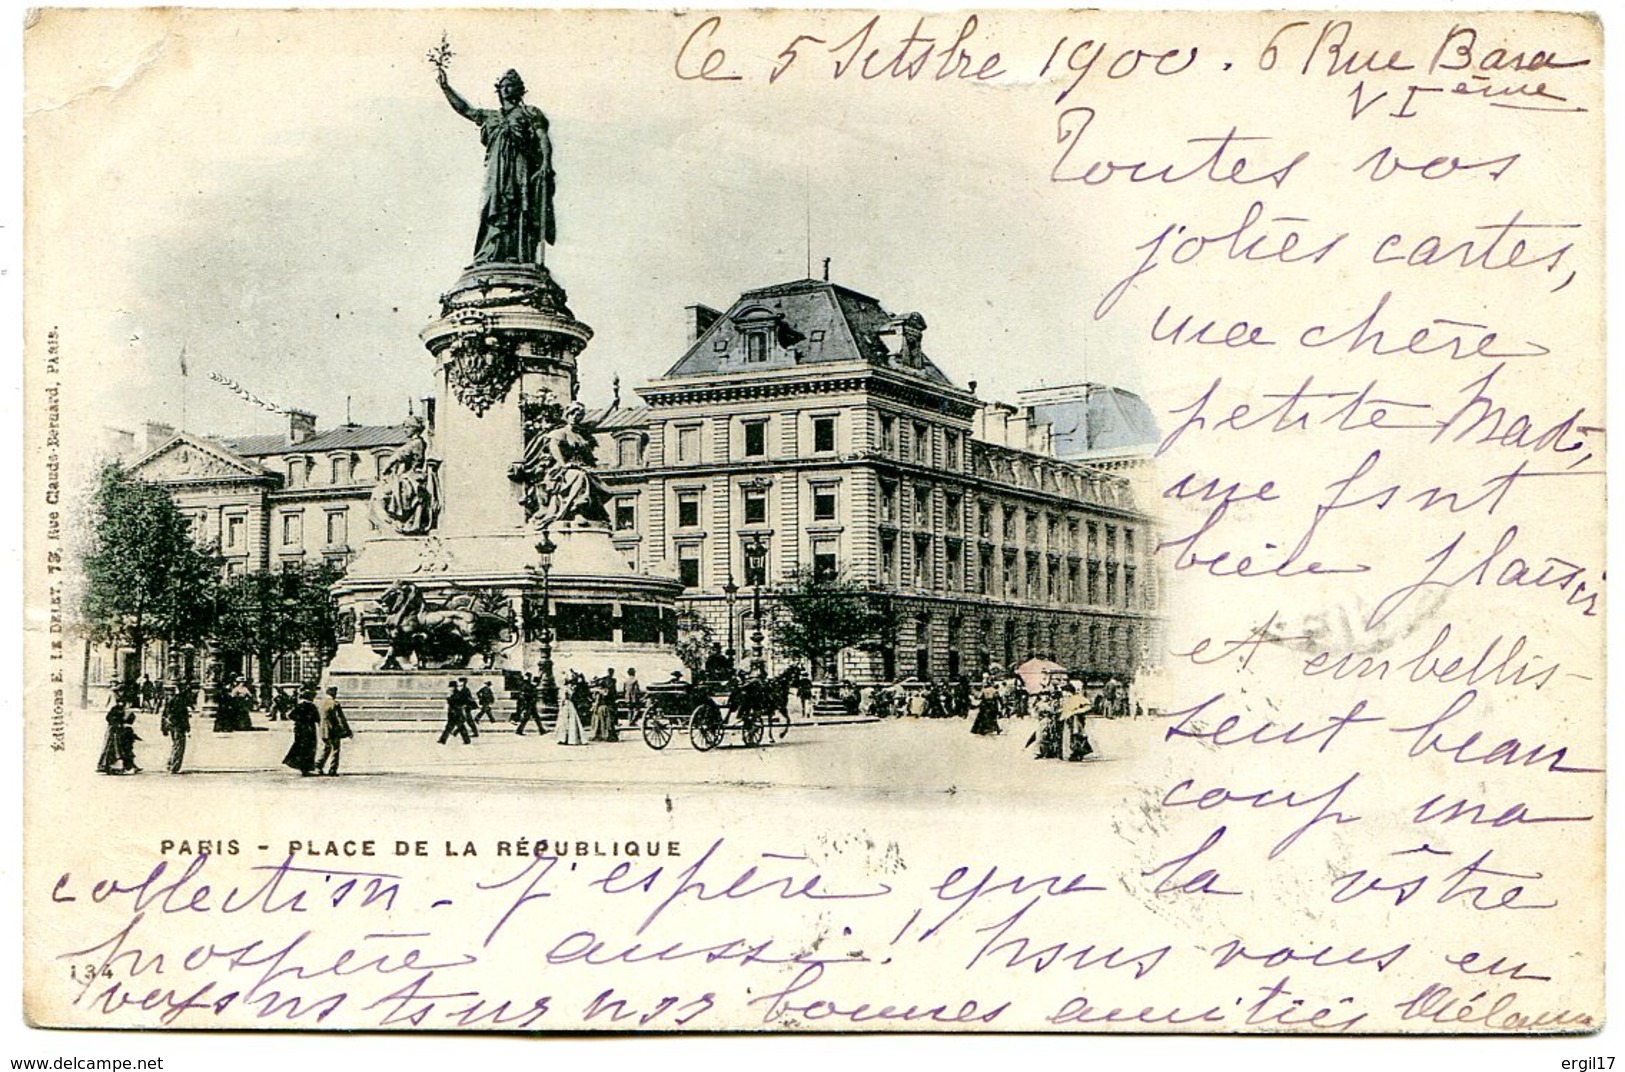 Ce 5 Setsbre 1900. 6 Rue Bara
VIème
Toutes vos
jolies cartes,
ma chère
petite Mad,
me font
bien plaisir
et embellis-
sent beau
coup ma
PARIS - PLACE DE LA RÉPUBLIQUE
collection - J'espère que la vôtre
prospère aussi! Nous vous en
134
versons tous nos bonnes amitiés Mélanie
Éditions E. LE DELEY, 73, Rue Claude Bernard, PARIS.
ergil17